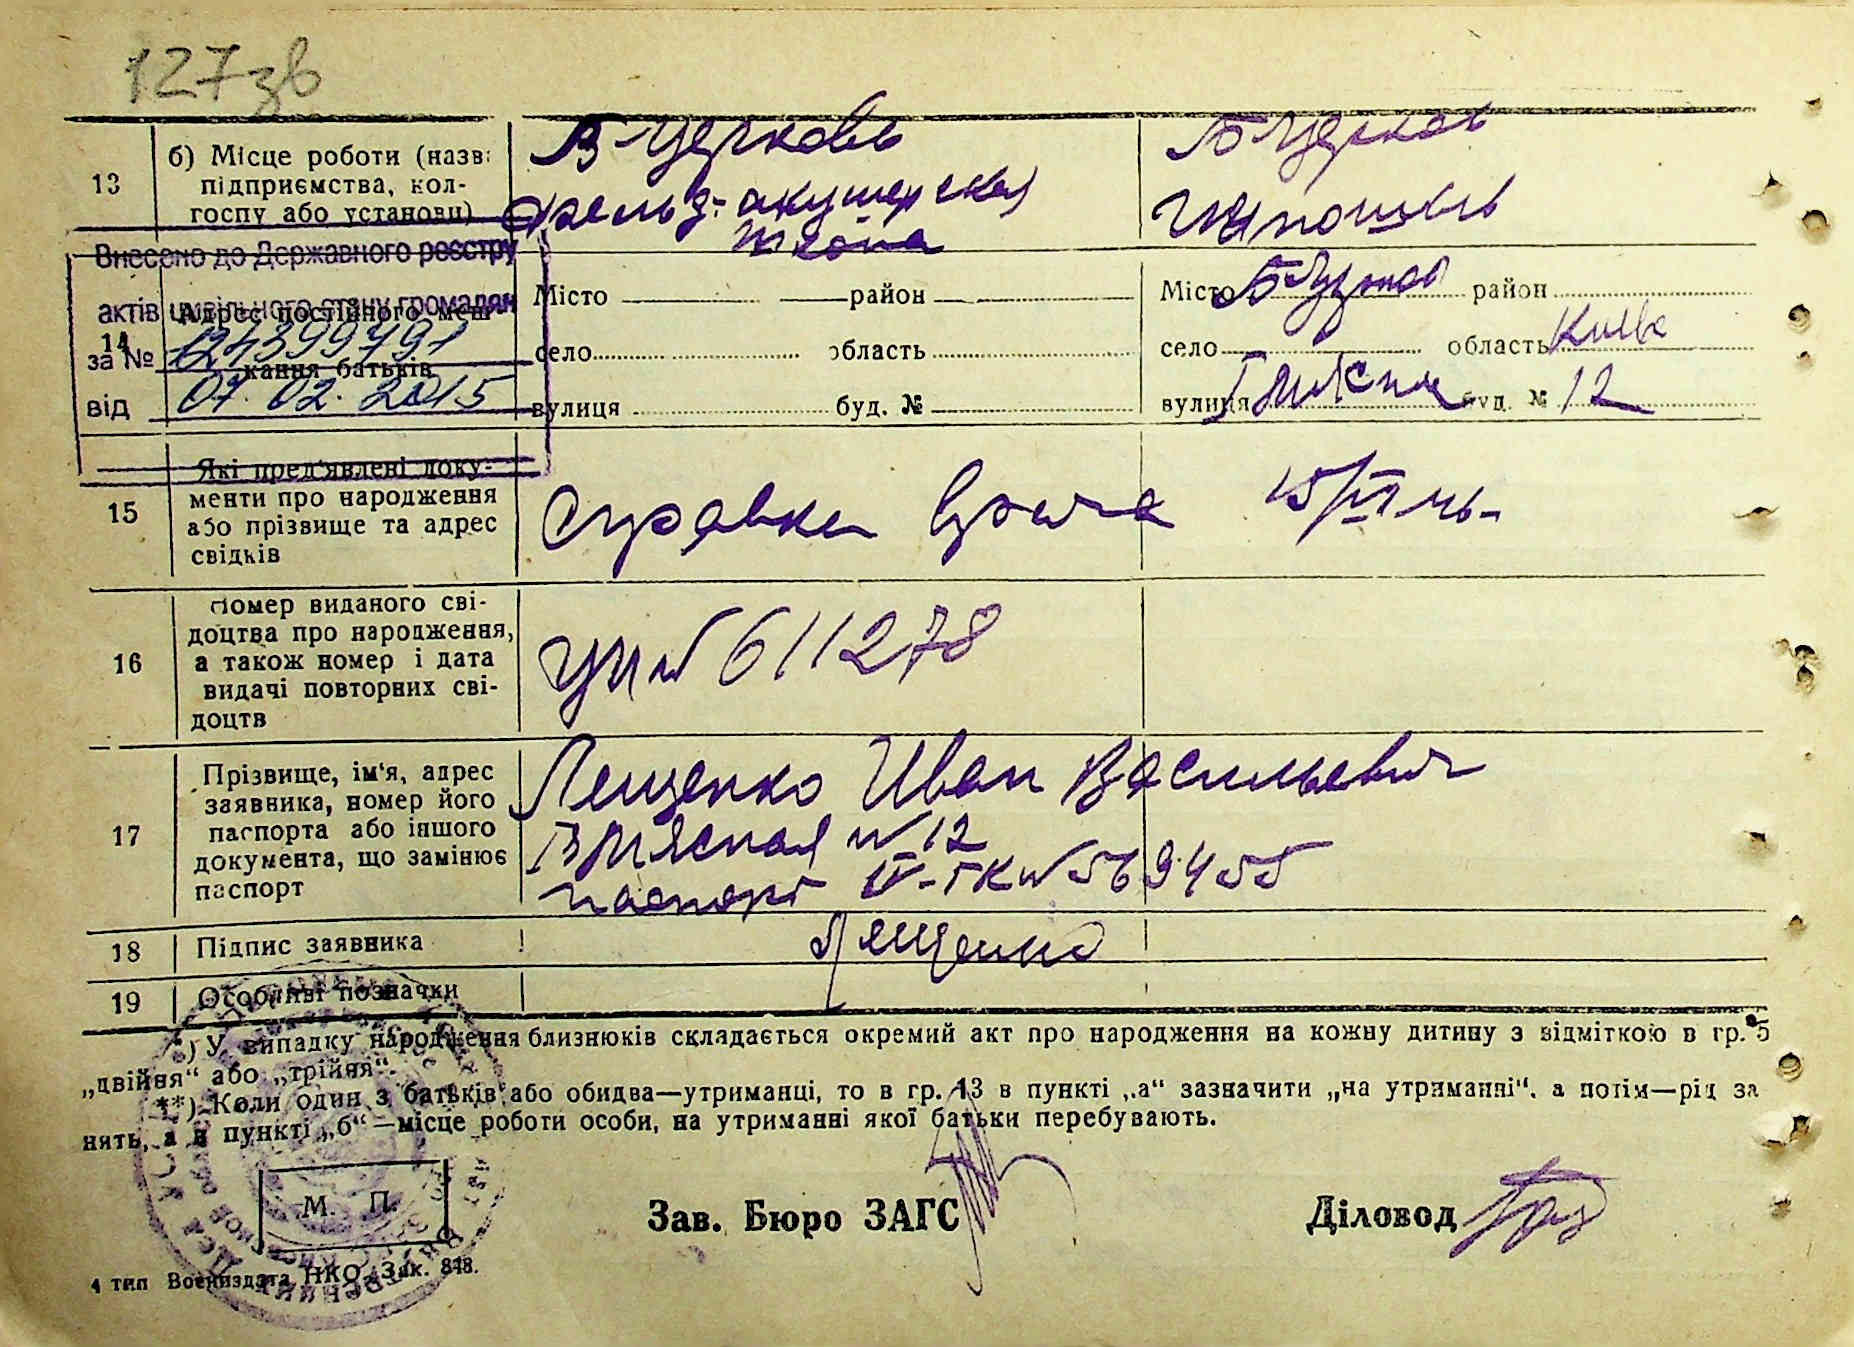 127 зв
13
б) Місце роботи (назв:
підприємства, кол-
госпу або установи)
Б Церковь
фельд-акушерская
школа
Б Церков
Місто район
село область
вулиця буд. №
Місто Б Церков район
село область Киев
вулиця буд. № 12
Внесено до Державного реєстру
актів цивільного стану громадян
за № 124399791
від 07.02.2015
14
Адрес постійного меш
кання батьків
15
Які пред'явлені доку-
менти про народження
або прізвище та адрес
свідків
Справка врача 15/VI 46-
16
Номер виданого сві-
доцтва про народження,
а також номер і дата
видачі повторних сві-
доцтв
№ 611278
17
Прізвище, ім'я, адрес
заявника, номер його
паспорта або іншого
документа, що замінює
паспорт
Лещенко Иван Васильевич
Мясная № 12
паспорт IV-ГК № 569455
18
Підпис заявника
Лещенко
19
Особливі позначки
*) У випадку народження близнюків складається окремий акт про народження на кожну дитину з відміткою в гр. 5
„двійня“ або „трійня“.
**) Коли один з батьків або обидва—утриманці, то в гр. 13 в пункті „а“ зазначити „на утриманні“, а потім—рід за
нять, а в пункті „б“—місце роботи особи, на утриманні якої батьки перебувають.
М. П.
Зав. Бюро ЗАГС
Діловод
4 тип Воениздата НКО. Зак. 848.